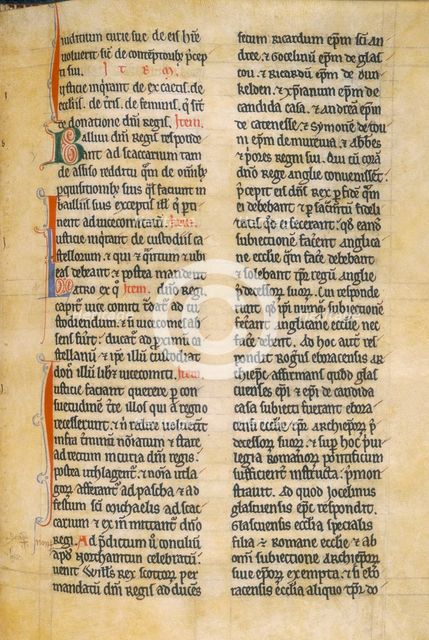 iusticiam curie sue de eis hre
voluerit sic de contemptoribȝ pcep
ti sui. It͞m
Iusticie inqrant de excaetis. de
ecctis. de tris. de feminis. q sūt
de donatione dnı Regis. Item.
Balliui dnı Regis respōde
ant ad scaccarium tam
de assiso redditu qm de omībȝ
pquisitionibȝ suis qs faciunt in
bailliis suis exceptis ill q pti
nent ad uicecomitatū. Item.
Iusticie inqrant de custodiis ca
stellorum. et qui et qntum et ubi
eas debeant. et postea mandent
Item dno Regi.
capt uice comiti tdat ad cu
stodiendum. et si uicecomes ab
sens fuit. ducat ad pximū ca
stellanū. et ipe illū custodiat
don illū libet uicecomiti. Item
Iusticie faciant querere p con
suetudinē tre illos qui a regno
recesserunt. et nisi redire voluerint
infra tminū nōiatum et stare
ad rectum in curia dnı regis.
postea uthlagent. et nōia uthla
gorum afferant ad pascha et ad
festum sci michaelis ad scac
carium et exin mittant dno
Regi. Ad pdictum u conciliū
apd Northantun celebratū
uenit Willˢ Rex scottorum pre
mandatū dnı Regis adducēs
secum Ricardum epm sci an
dree. et Gocelinū epm de glas
cou. et Ricardū epm de dun
kelden. et xpianum epm de
candida casa. et Andreā epm
de catenesse. et Symonē de tou
ni epm de mureuia. et abbes
et pores regni sui. Qui cū corā
dno rege Anglie conuenissent.
pcepit eis dns Rex p fidē qm
ei debebant et p sacmtū fideli
tatis qd ei fecerant. qd eand
subiectionē facent anglica
ne ecclie qm face debebant
et solebant tpre regū anglie
pdecessorum suorum. Cui responde
runt qd ipi nunqm subiectionē
fecant anglicane ecclie. nec
face debent. Ad hoc aut res
pondit Rogus eboracensis ar
chiepc affirmans quod glas
cuenses epi et epi de candida
casa subiecti fuerant ebora
censi ecclie tpre archieporum p
decessorum suorum. et sup hoc pui
legia Romanorum pontificum
sufficient instructa pmon
strauit. Ad quod Jocelinus
glascuensis epc respondit.
Glascuensis ecclia specialis
filia est Romane ecclie et ab
omi subiectione archieporum
siue eporum exempta. et si ebo
racensis ecclia aliquo tpre do